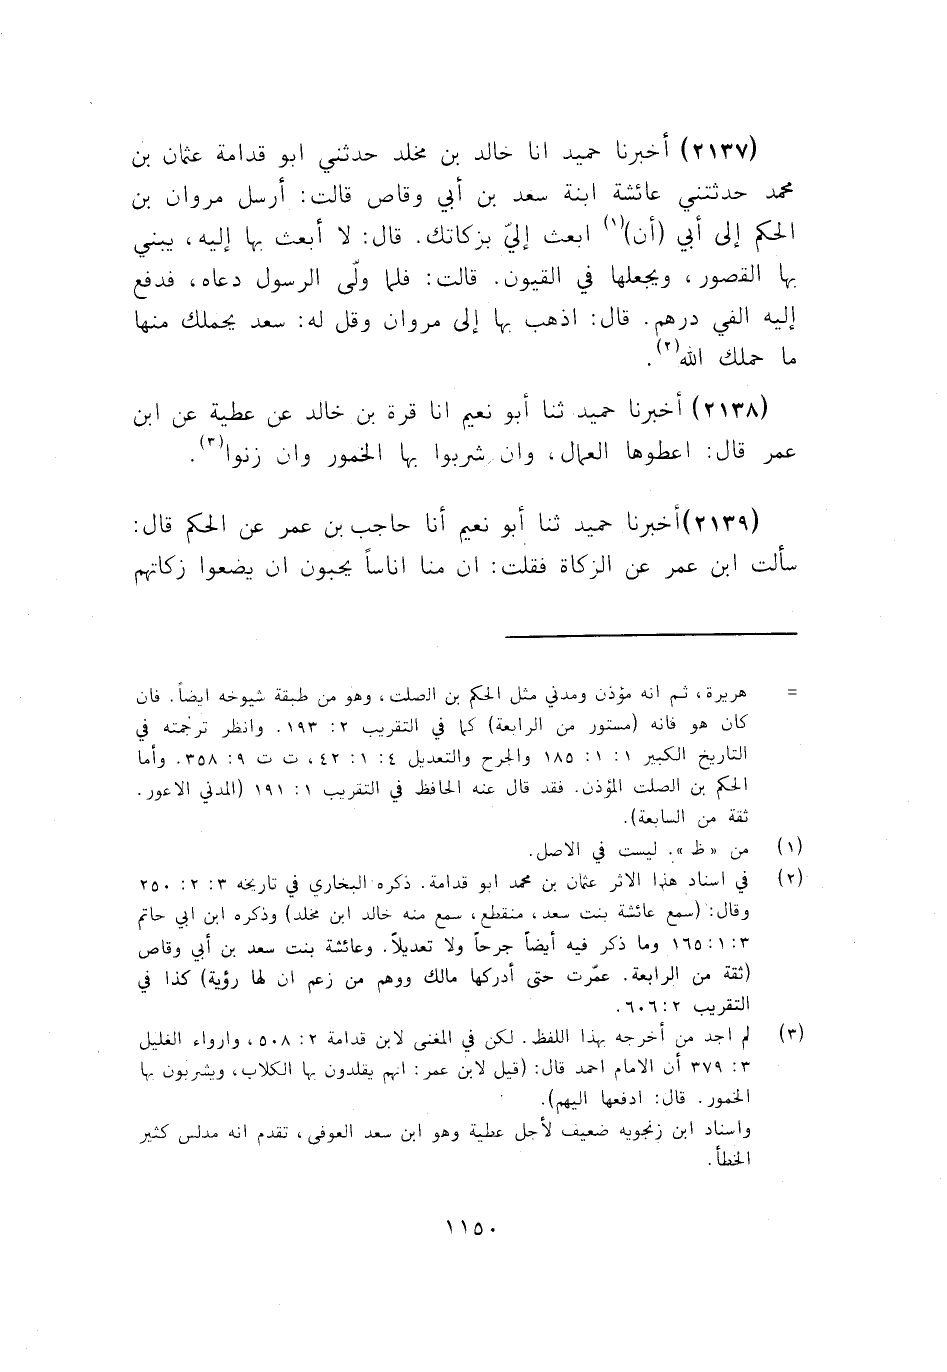 (٢١٣٧) أخبرنا حميد انا خالد بن مخلد حدثني ابو قدامة عثمان بن
محمد حدثتني عائشة ابنة سعد بن أبي وقاص قالت: أرسل مروان بن
الحكم إلى أبي (أن)(١) ابعث إليّ بزكاتك. قال: لا أبعث بها إليه، يبني
بها القصور، ويجعلها في القيون. قالت: فلما ولّى الرسول دعاه، فدفع
إليه الفي درهم. قال: اذهب بها إلى مروان وقل له: سعد يحملك منها
ما حملك الله(٢).
(٢١٣٨) أخبرنا حميد ثنا أبو نعيم انا قرة بن خالد عن عطية عن ابن
عمر قال: اعطوها العمال، وان شربوا بها الخمور وان زنوا(٣).
(٢١٣٩)أخبرنا حميد ثنا أبو نعيم أنا حاجب بن عمر عن الحكم قال:
سألت ابن عمر عن الزكاة فقلت: ان منا اناساً يحبون ان يضعوا زكاتهم
= هريرة، ثم انه مؤذن ومدني مثل الحكم بن الصلت، وهو من طبقة شيوخه ايضاً. فان
كان هو فانه (مستور من الرابعة) كما في التقريب ٢: ١٩٣. وانظر ترجمته في
التاريخ الكبير ١: ١: ١٨٥ والجرح والتعديل ٤: ١: ٤٢، ت ت ٩: ٣٥٨. وأما
الحكم بن الصلت المؤذن. فقد قال عنه الحافظ في التقريب ١: ١٩١ (المدني الاعور.
ثقة من السابعة).
(١) من «ظ». ليست في الاصل.
(٢) في اسناد هذا الاثر عثمان بن محمد ابو قدامة. ذكره البخاري في تاريخه ٣: ٢: ٢٥٠
وقال: (سمع عائشة بنت سعد، منقطع، سمع منه خالد ابن مخلد) وذكره ابن ابي حاتم
٣: ١: ١٦٥ وما ذكر فيه أيضاً جرحاً ولا تعديلاً. وعائشة بنت سعد بن أبي وقاص
(ثقة من الرابعة. عمّرت حتى أدركها مالك ووهم من زعم ان لها رؤية) كذا في
التقريب ٢: ٦٠٦.
(٣) لم اجد من أخرجه بهذا اللفظ. لكن في المغنى لابن قدامة ٢: ٥٠٨، وارواء الغليل
٣: ٣٧٩ أن الامام احمد قال: (قيل لابن عمر: انهم يقلدون بها الكلاب، ويشربون بها
الخمور. قال: ادفعها اليهم).
واسناد ابن زنجويه ضعيف لأجل عطية وهو ابن سعد العوفى، تقدم انه مدلس كثير
الخطأ.
١١٥٠